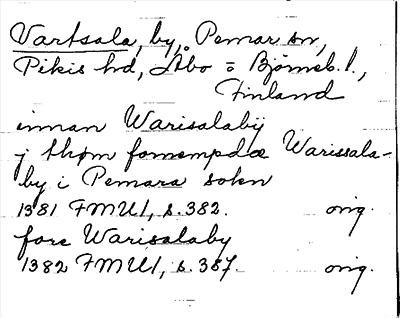 Vartsala, by, Pemar sn,
Pikis hd, Åbo o Björneb. l.,
Finland
innan Warisalaby
j thøm fornempdæ Warissala-
by i Pemara sokn
1381 FMU1, s. 382. orig.
fore Warisalaby
1382 FMU1, s. 387. orig.